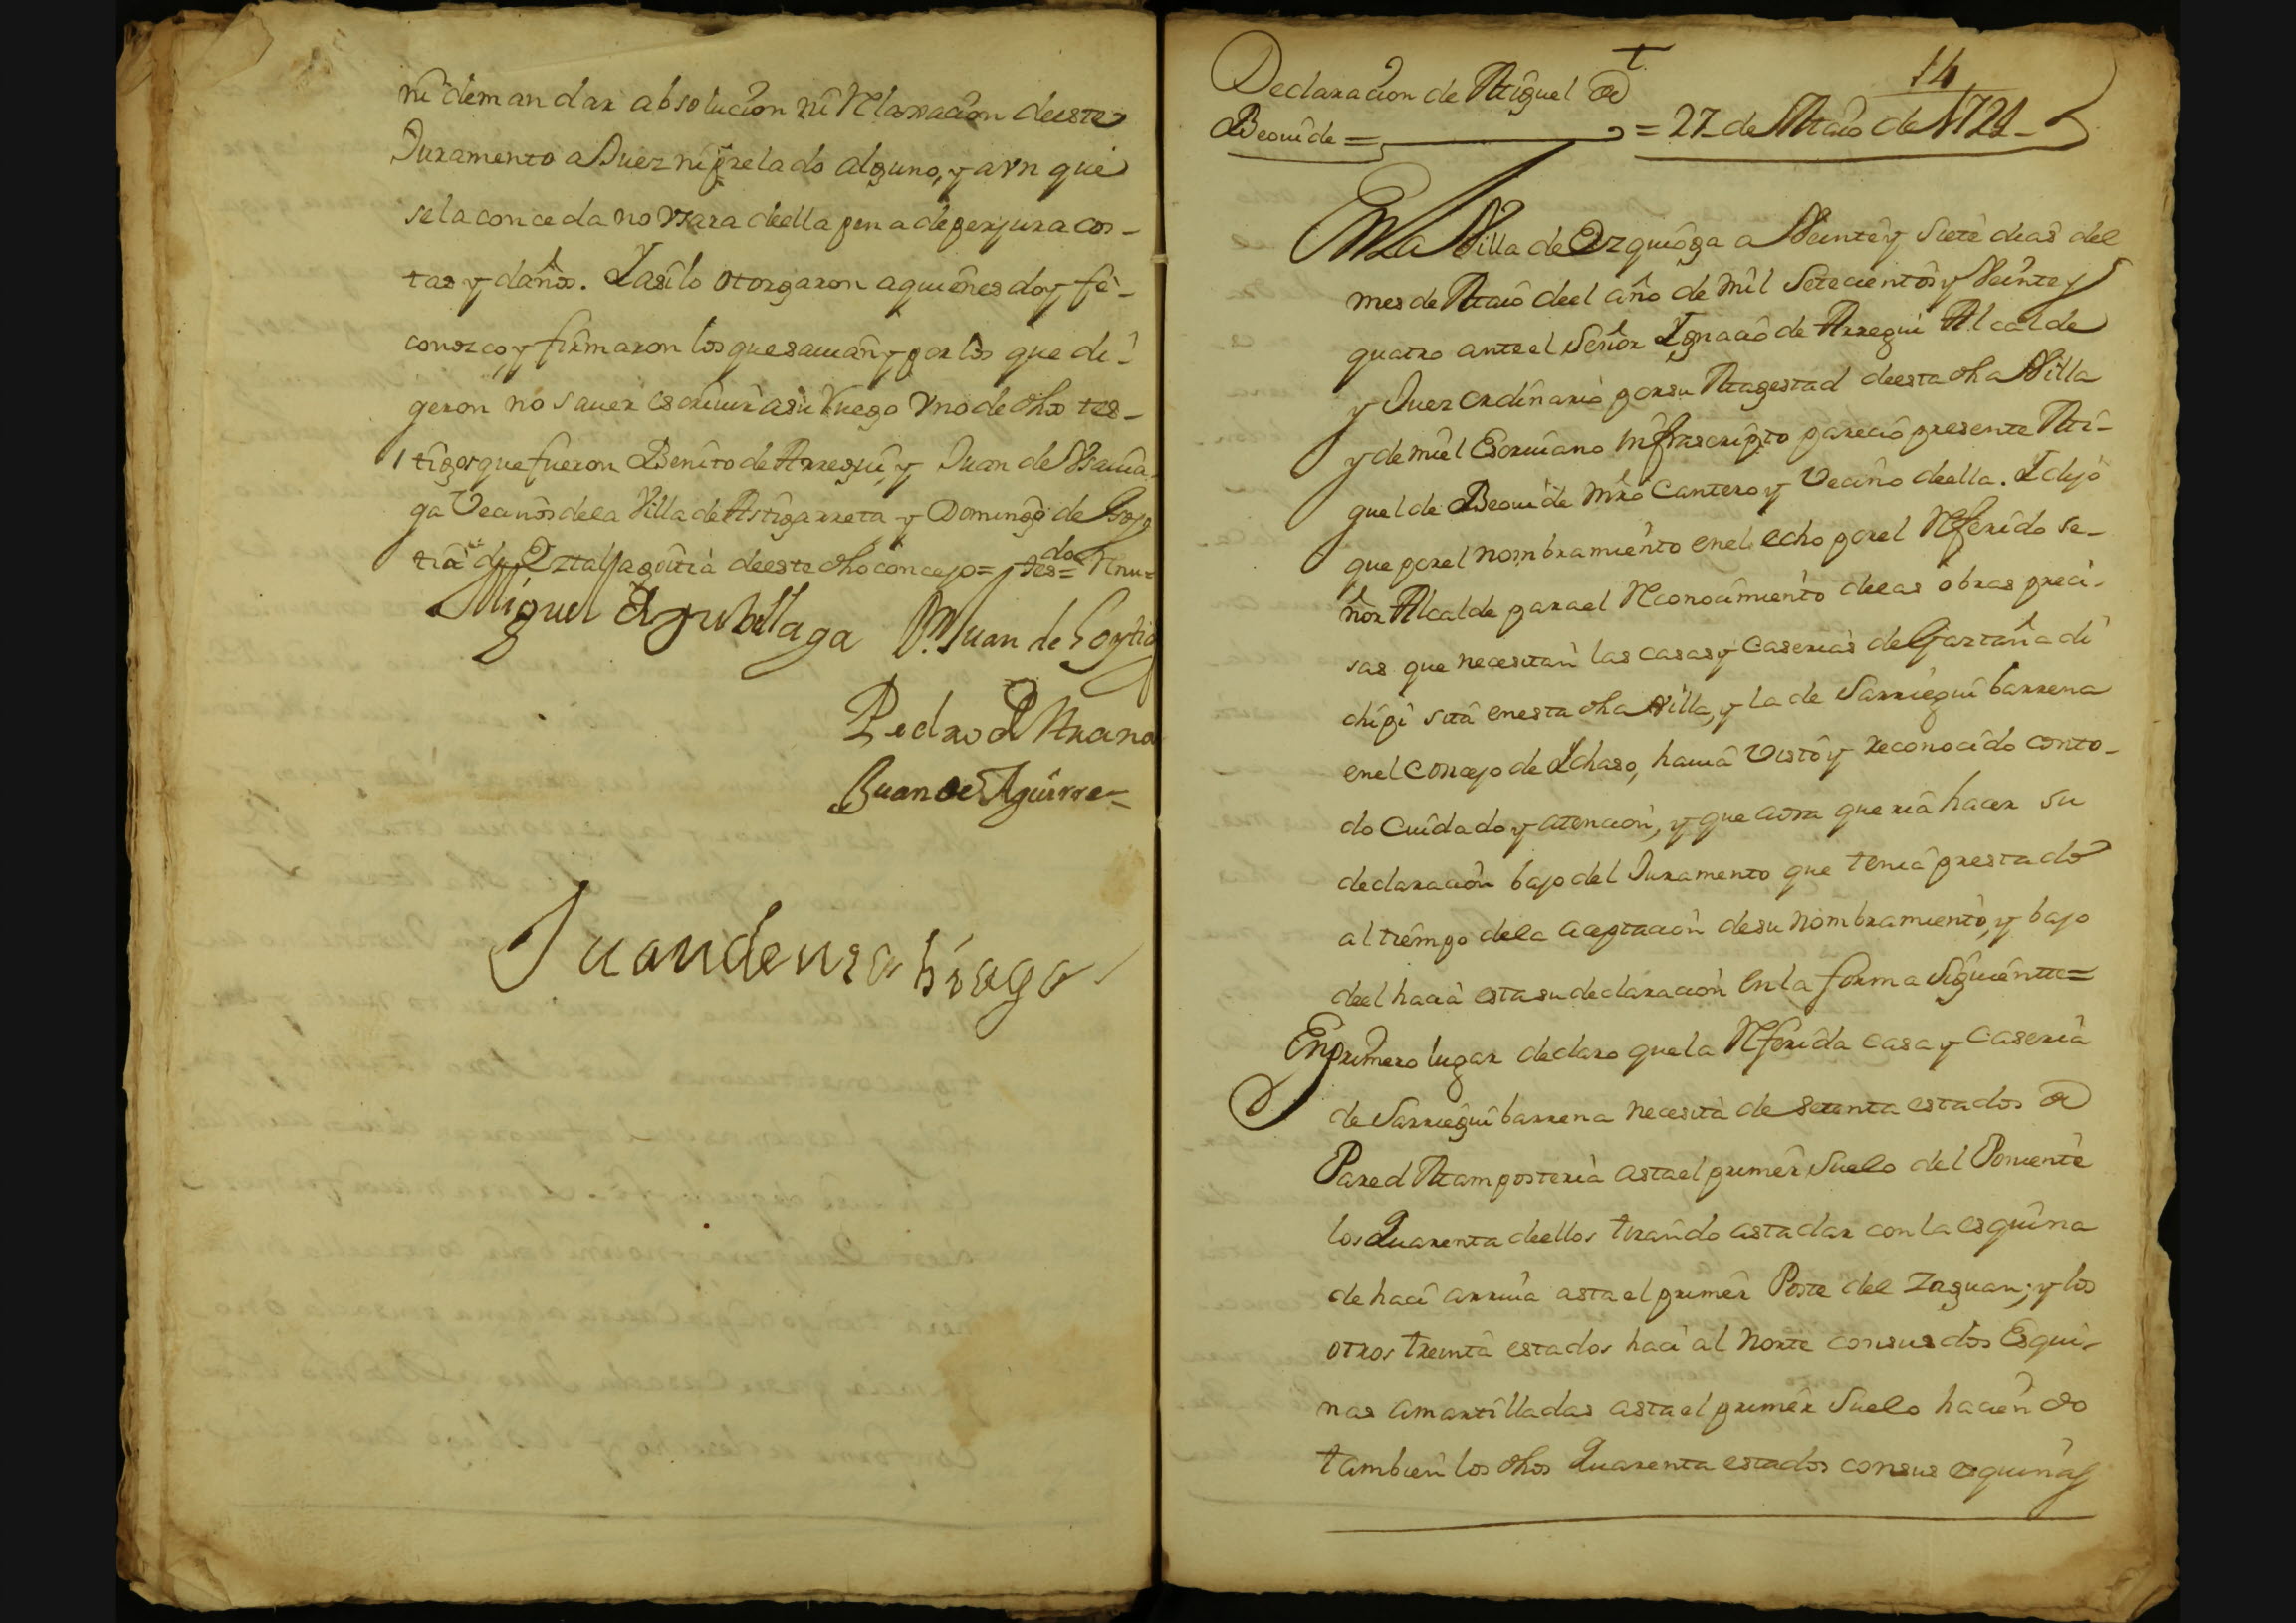 ni demandar absolucion ni Relaxacion deeste
Juramento a Juez ni prelado alguno, y avn que
se la conceda no vsara deella pena de perjura cos-
tas y daños. Y asi lo otorgaron a quienes doy fe-
conozco, y firmaron los que sauian y por los que di-
geron no sauer escriuir a su Ruego vno de dhos tes-
tigos que fueron Benito de Arregui, y Juan de
ga Vecinos dela Villa de Astigarreta y Domingo de
tia de deeste dho concejo=
Miguel de Juan de
Pedro de Arana
Juan de Aguirre-
Juan de
t
14
Declaracion de Miguel de
Beouide = = 27 de Maio de 1724-
En la Villa de Ezquioga a Veinte y Siete dias del
mes de Maio deel año de mil Setecientos y Veinte y
quatro ante el Señor Ignacio de Arregui Alcalde
y Juez ordinario por su Magestad deesta dha Villa
y de mi el Escriuano infrascripto parecio presente Mi-
guel de Beouide mro Cantero y Vecino deella. Y dijo
que por el nombramiento en el echo por el Referido se-
ñor Alcalde para el Reconocimiento deeas obras preci-
sas que necesitan las casas y Caserias de Gaztañadi
chipi sita en esta dha Villa, y la de Sarriegui barrena
en el Concejo de Ichaso, hauia Visto y reconocido con to-
do Cuidado y atencion, y que aora queria hacer su
declaracion bajo del Juramento que tenia prestado
al tiempo dela aceptacion de su nombramiento, y bajo
deel hacia esta su declaracion en la forma Siguiente=
En primero lugar declaro que la Referida casa y Caseria
de Sarriegui barrena necesita de setenta estados de
Pared Mamposteria asta el primer Suelo del Poniente
los Quarenta deellos tirando asta dar con la esquina
de haci arriua asta el primer Poste del Zaguan; y los
otros treinta estados haci al Norte con sus dos Esqui-
nas amartilladas asta el primer Suelo haciendo
tambien los dhos Quarenta estados con sus esquinas